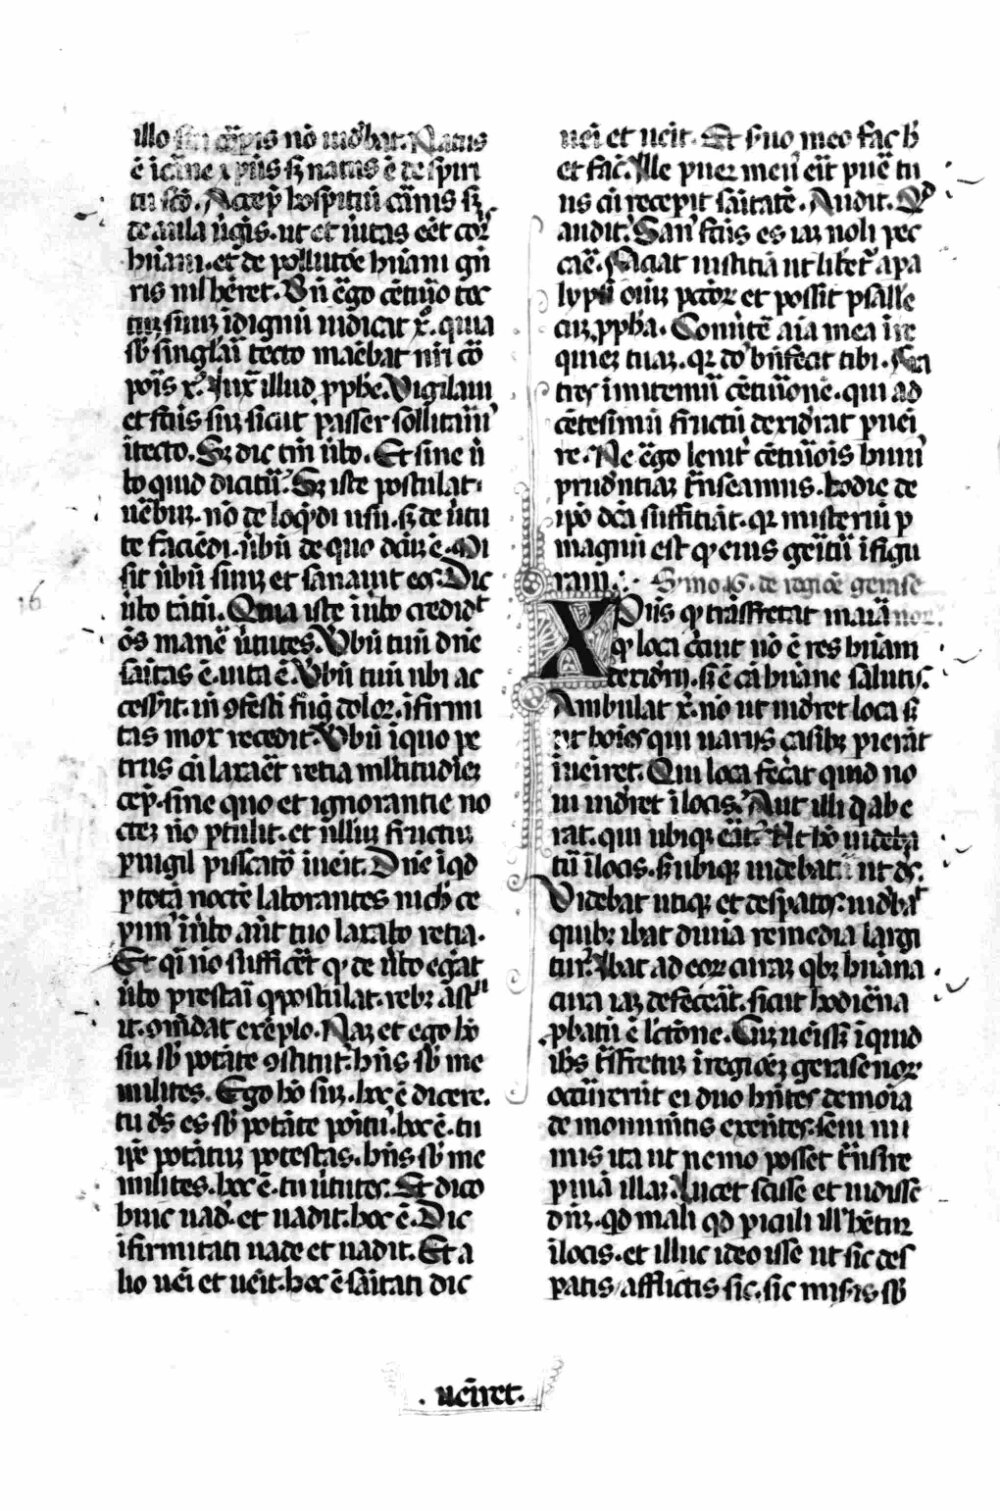 illo no uidebat. Natus
ē i carne xp̄us sꝫ natus ē de spiri
tu scō. Accep̄ hospitiū carnis sꝫ
de aula uirgīs. ut et uirtas eēt cor
hūani. et de pollutōe hūani gn̄
ris nil hēret. Vn̄ ergo cētuꝛio tec
tuꝫ suuꝫ īdignū iudicat xp̄. quia
sb̄ singlari tecto manēbat nr̄i cō
pois xp̄. Iux illud ꝓphē. Vigilaui
et fc̄us suꝫ sicut passer sollitariꝰ
ī tecto. Sꝫ dic tm̄ ūbo. Et sine ū
bo quid dicitur. Sꝫ iste postulat
uerbuꝫ. nō de loq̄ndi usu. sꝫ de ūtu
te faciēdi. ūbū de quo dcm̄ ē. Mi
sit ūbū suuꝫ et sanauit eos. Dic
ūbo tātū. Quia iste ī ūbo credidᵗ
oēs manē ūtutes. Vbū tuū dn̄e
sāitas ē. uita ē. Vbū tuū ubi ac
cessit. in ꝯfesti fugit dolor. īfirmi
tas mox recedit. Vbū ī quo pe
trus cū laxaēt retia mltitudieꝫ
cep̄. sine quo et ignorantie no
cteꝫ nō ptulit. et nulliꝰ fructuꝫ
puigil piscatō īuēit. Dn̄e īqd
p totā noctē laborantes nich̄ ce
pimꝰ ī ūbo aūt tuo laxabo retia.
Et q̄ nō sufficēt q̄ de ūbo eg̃at
ūbo prestari q̄ postulat. rebꝫ astrū
it. ꝯm̄dat exēplo. Naꝫ et ego hō
suꝫ sb̄ potāte ꝯstitut. hn̄s sb̄ me
milites. Ego hō suꝫ. hoc ē dicere.
tu ds̄ es sb̄ potāte poītꝰ. hoc ē. tu
ip̄e potātuꝫ potestas. hn̄s sb̄ me
milites. hoc ē. tu ūtutes. Et dico
huic uad̄. et uadit. hoc ē. Dic
īfirmitati uade et uadit. Et a
lio uēi et uēit. hoc ē sāitati dic
16
uēi et uēit. Et s̄uo meo fac h̄
et fac̄. Ille puer meꝰ erit puer tu
us cū recepit sāitatē. Audit. Qd̄
audit. Sanꝰ fc̄us es iaꝫ noli pec
care. Faciat iustitiā ut libert̄ apa
lypsi oīuꝫ pctōꝝ et possit psalle
cuꝫ ꝓpha. Conūtē aīa mea ī re
quieꝫ tuaꝫ. qꝛ dō bn̄fecit tibi. Fra
tres īmitemur cētuꝛionē. qui ad
cētesimū fructū desidrat pueī
re. Ne ergo leuit̄ cētuꝛiōis huiꝰ
prudntiaꝫ tn̄seamus. hodie de
ip̄o dc̄a sufficiāt. qꝛ misteriū p
magnū est q̄ eius gentiū ī figu
ram. Smo 16. de regiōe gerase
noꝝ.
Xp̄us q̄ trāsfretat mariā
q̄ loca cānt nō ē res hūam
tedioꝝ. sꝫ ē cā hūane salutis.
Ambulat xp̄. nō ut uidret loca sꝫ
ut hoīes qui uariis casibꝫ pierāt
īueiret. Qui loca fecāt quid no
ui uidret ī locis. Aut illi q̄ abe
rāt. qui ubiqꝫ erāt. At hō uideba
tur ī locis. sꝫ ubiqꝫ uidebat ut dꝰ.
Videbat utiqꝫ et desp̄atos. uidbāᵗ
quibꝫ ibat diuīa remedia largi
turꝰ. Ibat ad eoꝝ curaꝫ qbꝫ hūana
cura iaꝫ defeceāt. sicut hodierna
ꝓbatū ē lectiōne. Cuꝫ uēissꝫ ī quid
ihs̄ trāsfretuꝫ ī regiōeꝫ gerasenoꝝ
occurrerūt ei duo hn̄tes demoīa
de monumtis exeūtes. seui ni
mis ita ut nemo posset tn̄sire
p uiā illaꝫ. Lucet scisse et uidissē
dn̄ꝫ. qd̄ mali qd̄ piculi illi hētur
ī locis. et illuc ideo issē ut sic des
patis afflictis sic. sic misis sb̄
. uēiret.